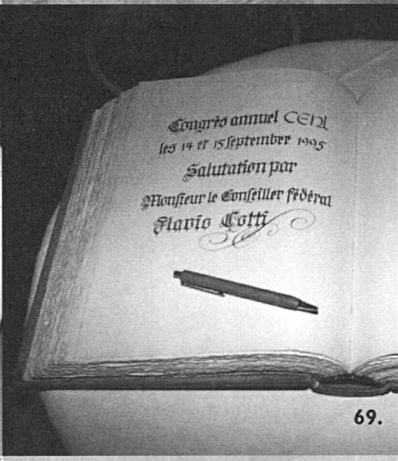 Congrès annuel CENL
les 14 et 15 september 1995
Salutation par
Monsieur le Conseiller fédéral
Flavio Cotti
69.